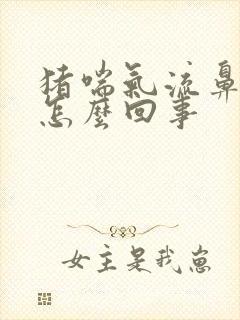 猪喘氣流鼻
怎麼回事
女主是我崽